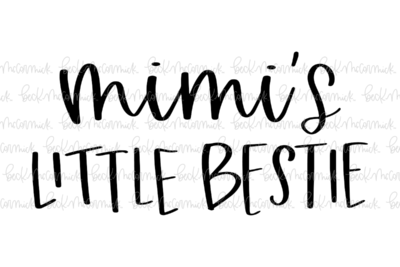 mimi's
LITTLE BESTIE